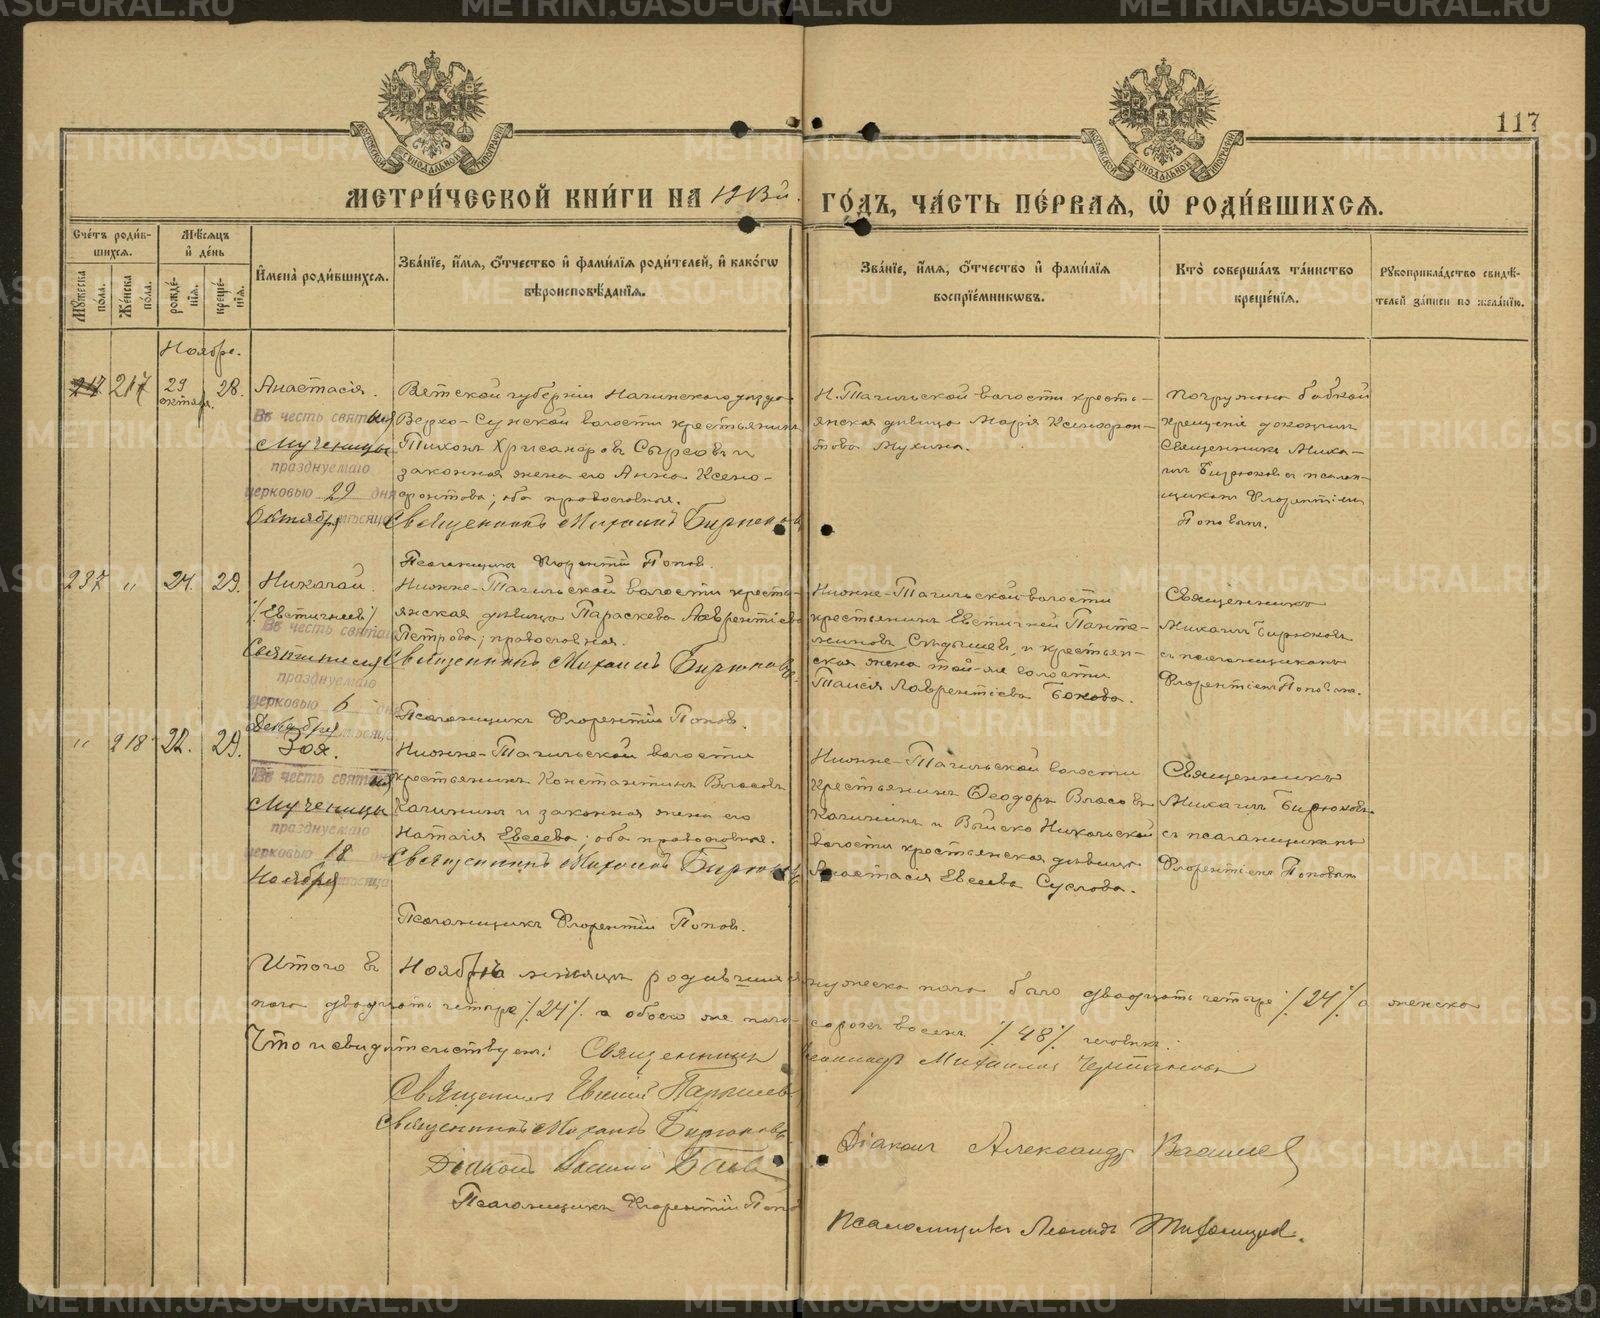 117
МЕТРИ́ЧЕСКОЙ КНИ́ГИ НА 1913й ГО́ДЪ, ЧА́СТЬ ПЕ́РВАЯ, Ѡ РОДИ́ВШИХСЯ.
Сче́тъ роди́в-
шихся.
Му́жеска по́ла.
Же́нска по́ла.
Мѣ́сяцъ и де́нь
рожде́-
нія.
креще́-
нія.
Имена̀ роди́вшихся.
Зва́нїе, и́мя, о́тчество и фами́лїя роди́телей, и како́гѡ
вѣроисповѣ́данїя.
Зва́нїе, и́мя, о́тчество и фами́лїя
воспрїе́мникѡвъ.
Кто̀ соверша́лъ та́инство
креще́нїя.
Рукоприкла́дство свидѣ́-
телей за́писи по жела́нїю.
Ноябрь.
217 217 29 октября. 28.
Анастасія.
Въ честь святыя
Мученицы
празднуемаго
церковью 29 дня
Октября мѣсяца
Вятской губерніи уѣзда
Верхо-Сунской волости крестьянинъ
Тихонъ Хрисанфовъ Сырсовъ и
законная жена его Анна Ксено-
фонтова; оба православные.
Священникъ Михаилъ Бирюковъ
Псаломщикъ Флорентій Попов.
Н.Тагильской волости кресть-
янская дѣвица Марія Ксенофон-
това Мухина.
Погружено бабкой
крещеніе
Священникъ Миха-
илъ Бирюковъ съ псалом-
щикомъ Флорентіемъ
Поповымъ.
237 " 24. 29.
Николай.
/Евстигнеев/
Въ честь святаго
Святителя
празднуемаго
церковью 6 дня
Декабря мѣсяца
Нижне-Тагильской волости кресть-
янская дѣвица Параскева Лаврентіева
Петрова; православная.
Священникъ Михаилъ Бирюковъ.
Псаломщикъ Флорентій Попов.
Нижне-Тагильской волости
крестьянинъ Евстигней Панте-
лимоновъ и крестьян-
ская жена той-же волости
Таисія Лаврентіева Бокова.
Священникъ
Михаилъ Бирюковъ
съ псаломщикомъ
Флорентіемъ Поповымъ.
" 218 22. 29.
Зоя.
Въ честь святыя
Мученицы
празднуемаго
церковью 18 дня
Ноября мѣсяца
Нижне-Тагильской волости
крестьянинъ Константинъ Власовъ
Калининъ и законная жена его
Наталія Евсеева; оба православные.
Священникъ Михаилъ Бирюковъ
Псаломщикъ Флорентій Попов.
Нижне-Тагильской волости
крестьянинъ Ѳеодоръ Власовъ
Калининъ и Выйско Никольской
волости крестьянская дѣвица
Анастасія Евсеева Суслова.
Священникъ
Михаилъ Бирюковъ
съ псаломщикомъ
Флорентіемъ Поповымъ
Итого въ Ноябрѣ мѣсяцѣ родившихся мужеска пола было двадцать четыре /24/ а женска
пола двадцать четыре /24/. а обоего же пола сорокъ восемь /48/ человѣкъ.
Что и свидѣтельствуемъ: Священникъ
Священникъ Евгеній
Священникъ Михаилъ Бирюковъ.
Діаконъ
Діаконъ Александръ
Псаломщикъ Флорентій Попов
Псаломщикъ Леонидъ
METRIKI.GASO-URAL.RU